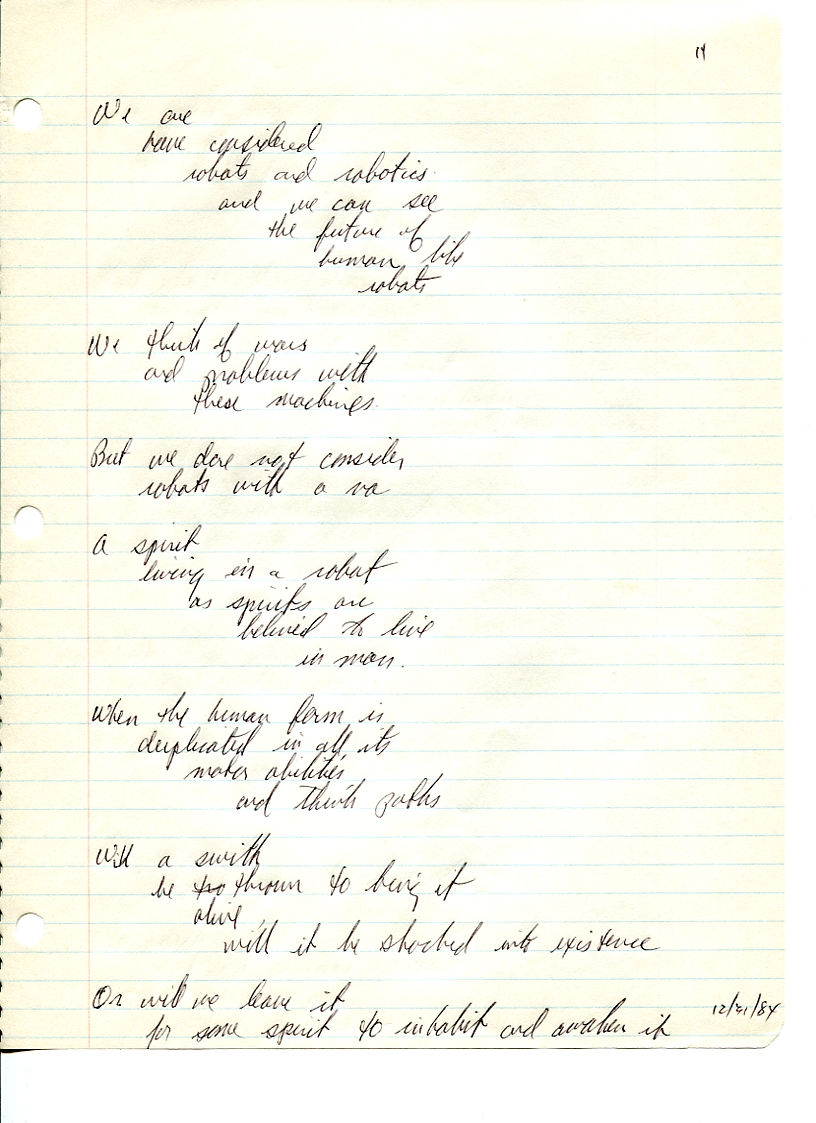 14
We are
have considered
robots and robotics.
and we can see
the future of
human like
robots
We think of wars
and problems with
these machines.
But we dare not consider
robots with a va
A spirit
living in a robot
as spirits are
belived to live
in man.
When the human form is
deuplicated in all its
motor abilities
and think paths
Will a swith
be tro thrown to being it
alive,
will it be shocked into existence
Or will we leave it
for some spirit to inhabit and awaken it
12/31/84